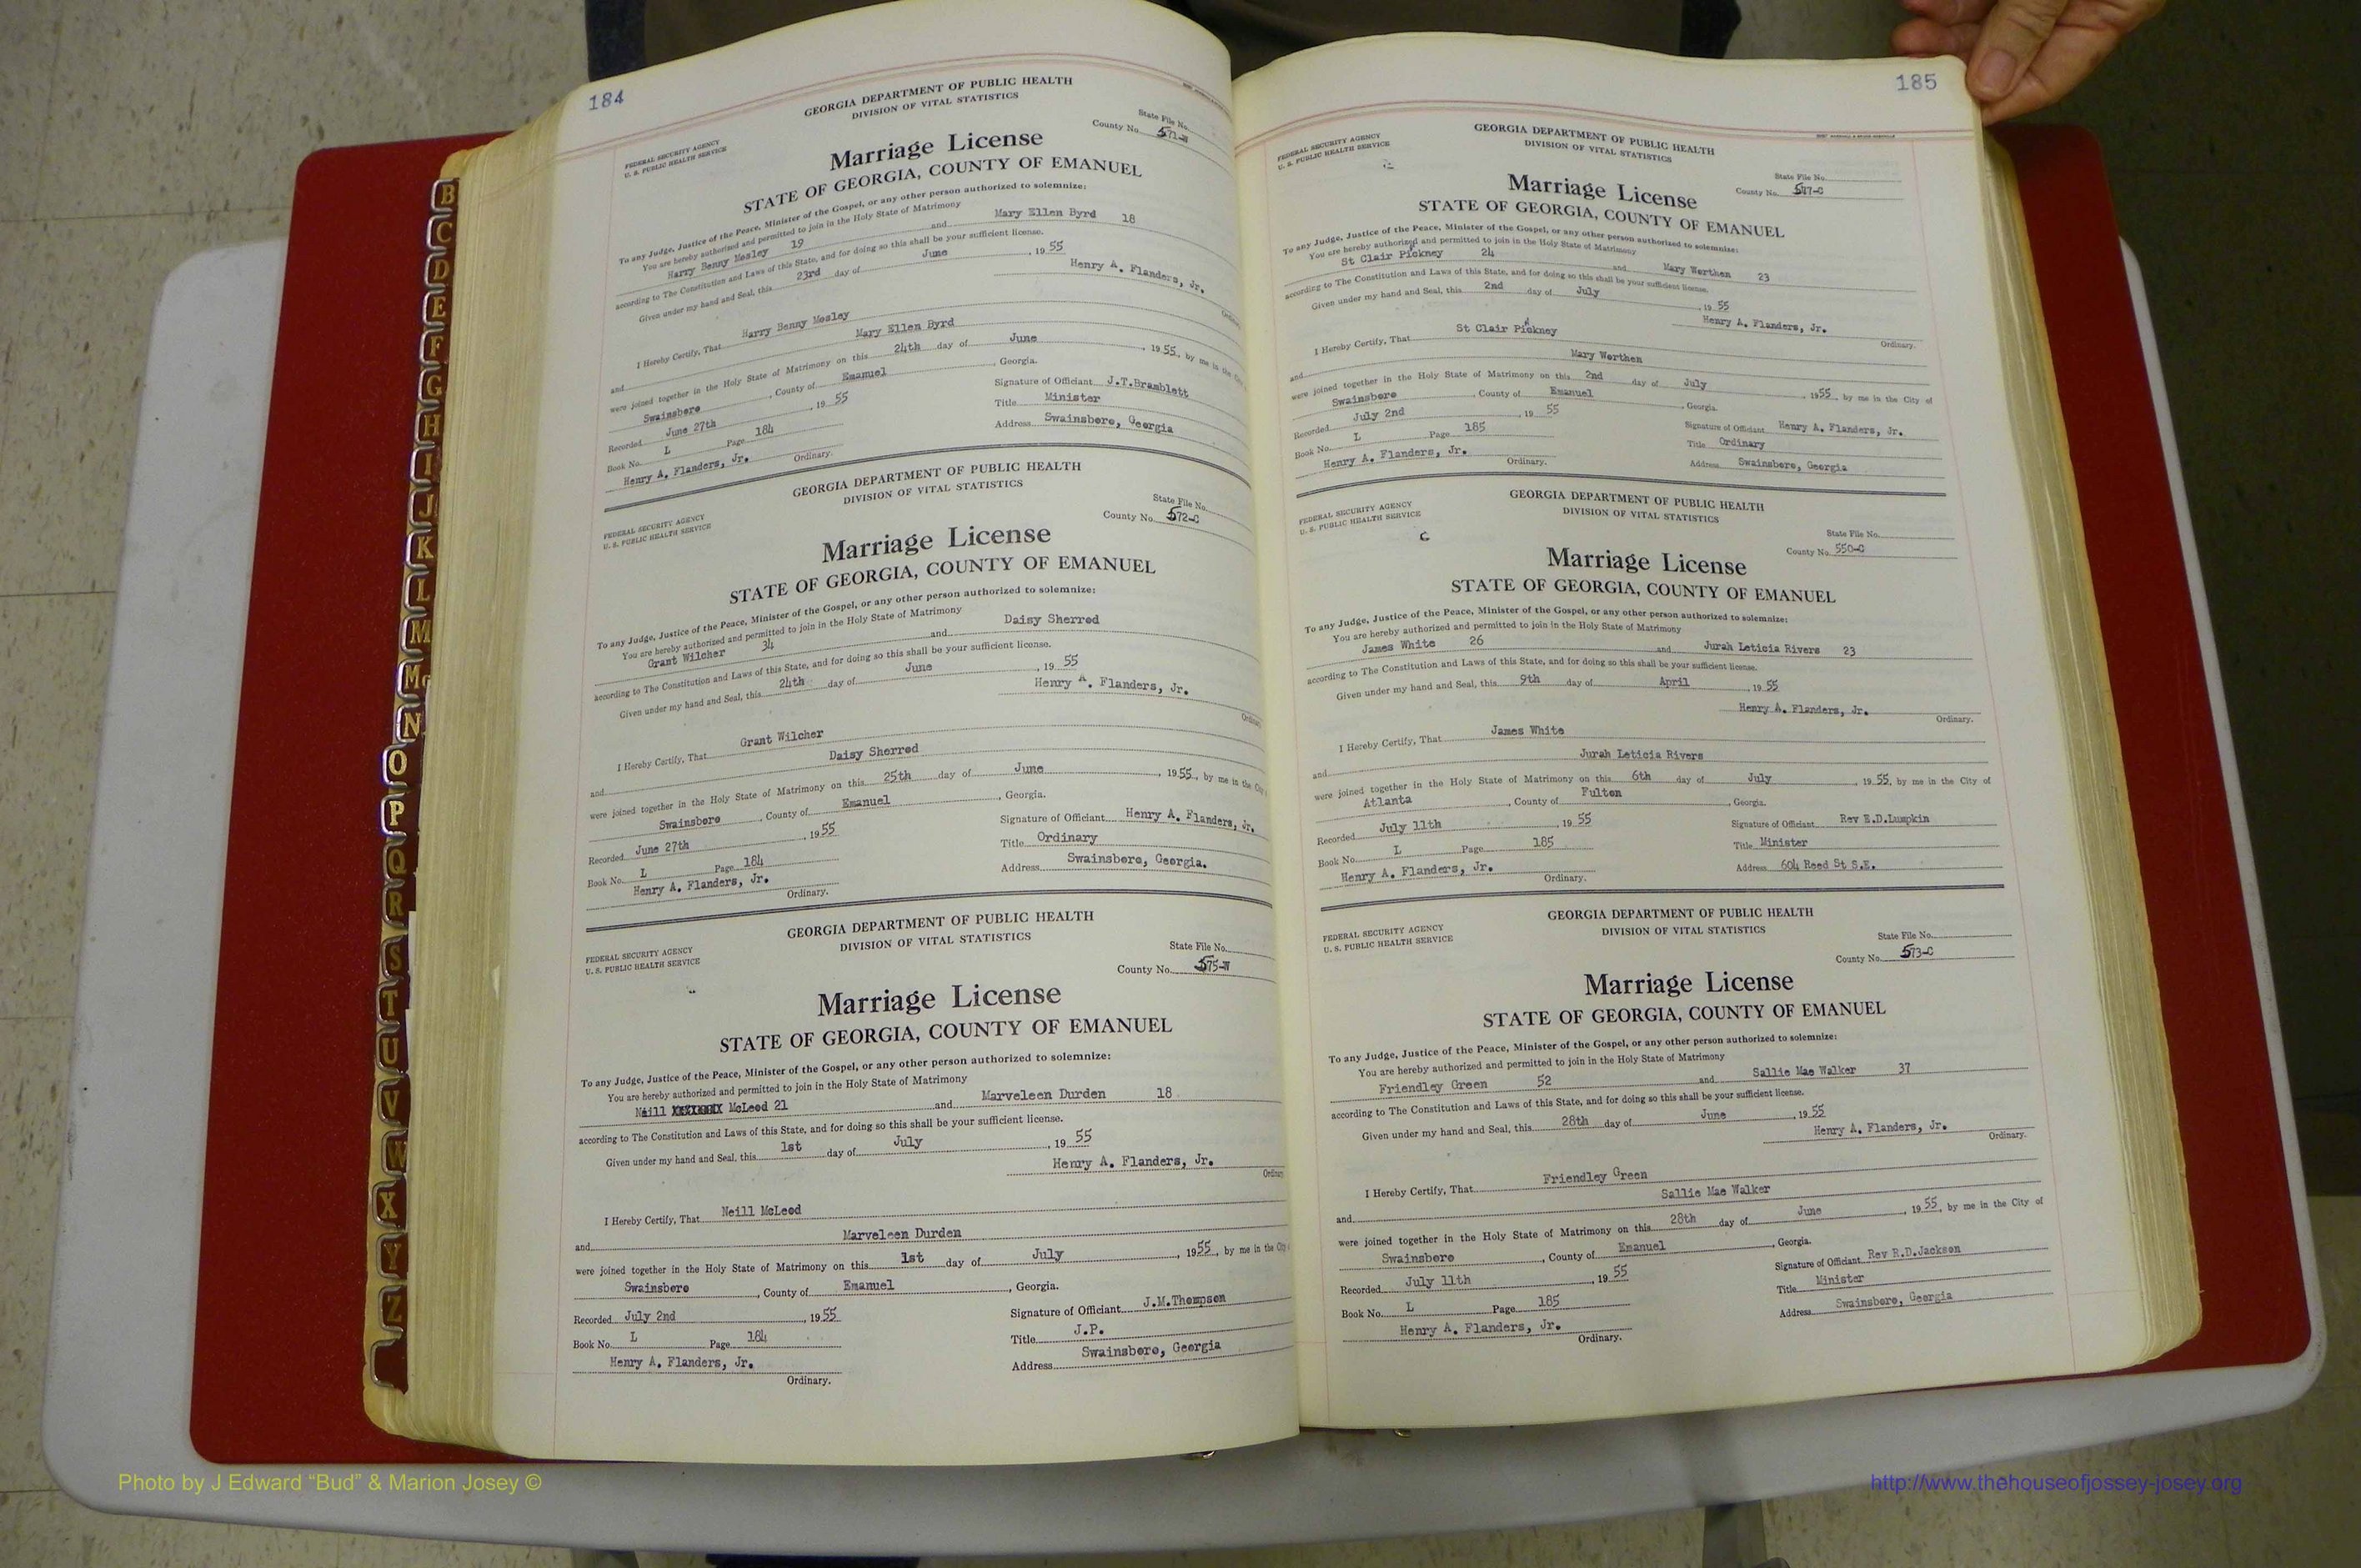 184
GEORGIA DEPARTMENT OF PUBLIC HEALTH
DIVISION OF VITAL STATISTICS
FEDERAL SECURITY AGENCY
U. S. PUBLIC HEALTH SERVICE
State File No.
County No. 571-W
Marriage License
STATE OF GEORGIA, COUNTY OF EMANUEL
To any Judge, Justice of the Peace, Minister of the Gospel, or any other person authorized to solemnize:
You are hereby authorized and permitted to join in the Holy State of Matrimony
Harry Benny Mosley 19 and Mary Ellen Byrd 18
according to The Constitution and Laws of this State, and for doing so this shall be your sufficient license.
Given under my hand and Seal, this 23rd day of June, 1955
Henry A. Flanders, Jr.
Ordinary.
I Hereby Certify, That Harry Benny Mosley
and Mary Ellen Byrd
were joined together in the Holy State of Matrimony on this 24th day of June, 1955, by me in the City
Swainsboro, County of Emanuel, Georgia.
Recorded June 27th, 1955
Signature of Officiant J.T.Bramblett
Book No. L Page 184
Title Minister
Henry A. Flanders, Jr.
Ordinary.
Address Swainsboro, Georgia
GEORGIA DEPARTMENT OF PUBLIC HEALTH
DIVISION OF VITAL STATISTICS
FEDERAL SECURITY AGENCY
U. S. PUBLIC HEALTH SERVICE
State File No.
County No. 572-C
Marriage License
STATE OF GEORGIA, COUNTY OF EMANUEL
To any Judge, Justice of the Peace, Minister of the Gospel, or any other person authorized to solemnize:
You are hereby authorized and permitted to join in the Holy State of Matrimony
Grant Wilcher 34 and Daisy Sherrod
according to The Constitution and Laws of this State, and for doing so this shall be your sufficient license.
Given under my hand and Seal, this 24th day of June, 1955
Henry A. Flanders, Jr.
Ordinary
I Hereby Certify, That Grant Wilcher
and Daisy Sherrod
were joined together in the Holy State of Matrimony on this 25th day of June, 1955, by me in the City
Swainsboro, County of Emanuel, Georgia.
Recorded June 27th, 1955
Signature of Officiant Henry A. Flanders, Jr.
Book No. L Page 184
Title Ordinary
Henry A. Flanders, Jr.
Ordinary.
Address Swainsboro, Georgia.
GEORGIA DEPARTMENT OF PUBLIC HEALTH
DIVISION OF VITAL STATISTICS
FEDERAL SECURITY AGENCY
U. S. PUBLIC HEALTH SERVICE
State File No.
County No. 575-W
Marriage License
STATE OF GEORGIA, COUNTY OF EMANUEL
To any Judge, Justice of the Peace, Minister of the Gospel, or any other person authorized to solemnize:
You are hereby authorized and permitted to join in the Holy State of Matrimony
Neill McLeod 21 and Marveleen Durden 18
according to The Constitution and Laws of this State, and for doing so this shall be your sufficient license.
Given under my hand and Seal, this 1st day of July, 1955
Henry A. Flanders, Jr.
Ordinary
I Hereby Certify, That Neill McLeod
and Marveleen Durden
were joined together in the Holy State of Matrimony on this 1st day of July, 1955, by me in the City
Swainsboro, County of Emanuel, Georgia.
Recorded July 2nd, 1955
Signature of Officiant J.M.Thompson
Book No. L Page 184
Title J.P.
Henry A. Flanders, Jr.
Ordinary.
Address Swainsboro, Georgia
185
GEORGIA DEPARTMENT OF PUBLIC HEALTH
DIVISION OF VITAL STATISTICS
FEDERAL SECURITY AGENCY
U. S. PUBLIC HEALTH SERVICE
State File No.
County No. 577-C
Marriage License
STATE OF GEORGIA, COUNTY OF EMANUEL
To any Judge, Justice of the Peace, Minister of the Gospel, or any other person authorized to solemnize:
You are hereby authorized and permitted to join in the Holy State of Matrimony
St Clair Pinkney 24 and Mary Worthen 23
according to The Constitution and Laws of this State, and for doing so this shall be your sufficient license.
Given under my hand and Seal, this 2nd day of July, 1955
Henry A. Flanders, Jr.
Ordinary.
I Hereby Certify, That St Clair Pinkney
and Mary Worthen
were joined together in the Holy State of Matrimony on this 2nd day of July, 1955, by me in the City of
Swainsboro, County of Emanuel, Georgia.
Recorded July 2nd, 1955
Signature of Officiant Henry A. Flanders, Jr.
Book No. L Page 185
Title Ordinary
Henry A. Flanders, Jr.
Ordinary.
Address Swainsboro, Georgia
GEORGIA DEPARTMENT OF PUBLIC HEALTH
DIVISION OF VITAL STATISTICS
FEDERAL SECURITY AGENCY
U. S. PUBLIC HEALTH SERVICE
C
State File No.
County No. 550-C
Marriage License
STATE OF GEORGIA, COUNTY OF EMANUEL
To any Judge, Justice of the Peace, Minister of the Gospel, or any other person authorized to solemnize:
You are hereby authorized and permitted to join in the Holy State of Matrimony
James White 26 and Jurah Leticia Rivers 23
according to The Constitution and Laws of this State, and for doing so this shall be your sufficient license.
Given under my hand and Seal, this 9th day of April, 1955
Henry A. Flanders, Jr.
Ordinary.
I Hereby Certify, That James White
and Jurah Leticia Rivers
were joined together in the Holy State of Matrimony on this 6th day of July, 1955, by me in the City of
Atlanta, County of Fulton, Georgia.
Recorded July 11th, 1955
Signature of Officiant Rev E.D.Lumpkin
Book No. L Page 185
Title Minister
Henry A. Flanders, Jr.
Ordinary.
Address 604 Reed St S.E.
GEORGIA DEPARTMENT OF PUBLIC HEALTH
DIVISION OF VITAL STATISTICS
FEDERAL SECURITY AGENCY
U. S. PUBLIC HEALTH SERVICE
State File No.
County No. 573-C
Marriage License
STATE OF GEORGIA, COUNTY OF EMANUEL
To any Judge, Justice of the Peace, Minister of the Gospel, or any other person authorized to solemnize:
You are hereby authorized and permitted to join in the Holy State of Matrimony
Friendley Green 52 and Sallie Mae Walker 37
according to The Constitution and Laws of this State, and for doing so this shall be your sufficient license.
Given under my hand and Seal, this 28th day of June, 1955
Henry A. Flanders, Jr.
Ordinary.
I Hereby Certify, That Friendley Green
and Sallie Mae Walker
were joined together in the Holy State of Matrimony on this 28th day of June, 1955, by me in the City of
Swainsboro, County of Emanuel, Georgia.
Recorded July 11th, 1955
Signature of Officiant Rev R.D.Jackson
Book No. L Page 185
Title Minister
Henry A. Flanders, Jr.
Ordinary.
Address Swainsboro, Georgia
B
C
D
E
F
G
H
I
J
K
L
M
Mc
N
O
P
Q
R
S
T
U
V
W
X
Y
Z
Photo by J Edward “Bud” & Marion Josey ©
http://www.thehouseofjossey-josey.org